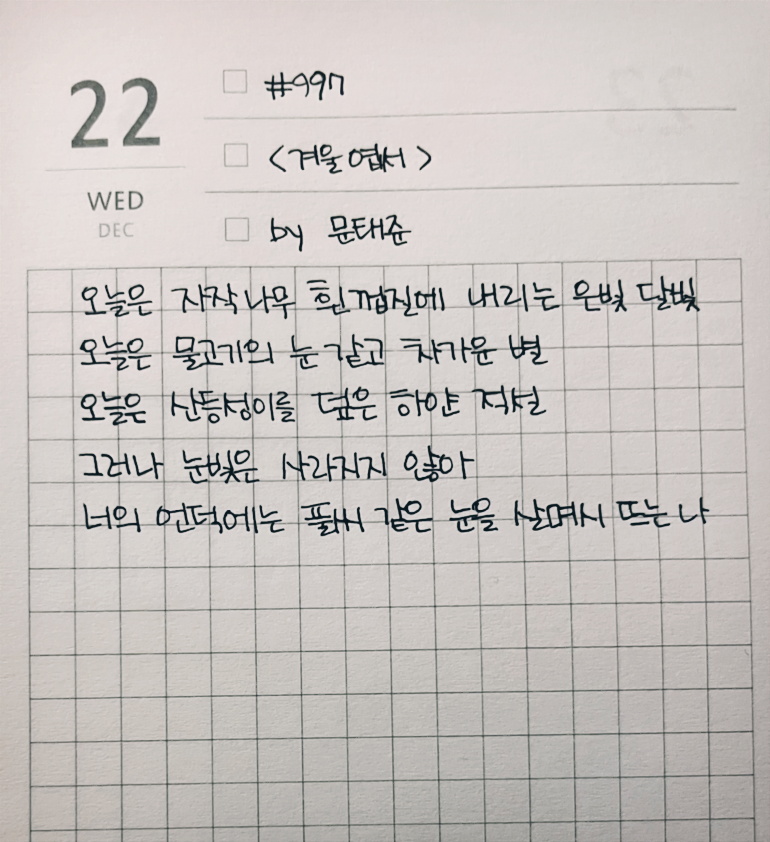 22
WED
DEC
#997
<겨울 엽서>
by 문태준
오늘은 자작나무 흰 껍질에 내리는 은빛 달빛
오늘은 물고기의 눈 같고 차가운 별
오늘은 산등성이를 덮은 하얀 적설
그러나 눈빛은 사라지지 않아
너의 언덕에는 풀씨 같은 눈을 살며시 뜨는 나